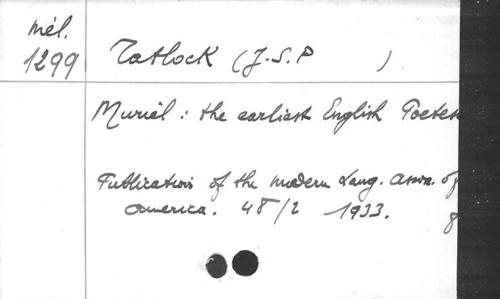 mél.
1299
Tatlock (J.S.P )
Muriel: the earliest English Poetess
Publication of the modern Lang. assoc. of
america. 48/2 1933.
8